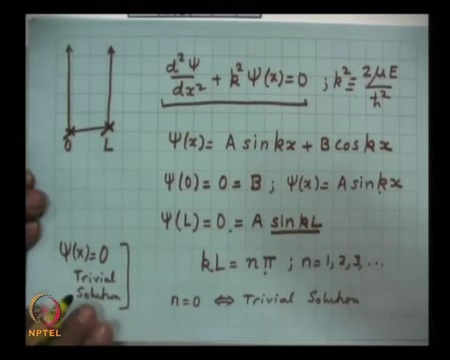 d²Ψ/dx² + k²Ψ(x)=0 ; k² = 2μE/ħ²
Ψ(x)= A sinkx + B coskx
Ψ(0)= 0 = B ; Ψ(x)= A sinkx
Ψ(L)= 0 = A sinkL
kL = nπ ; n=1,2,3,...
n=0 ⇔ Trivial Solution
0 L
Ψ(x)=0
Trivial
Solution
NPTEL